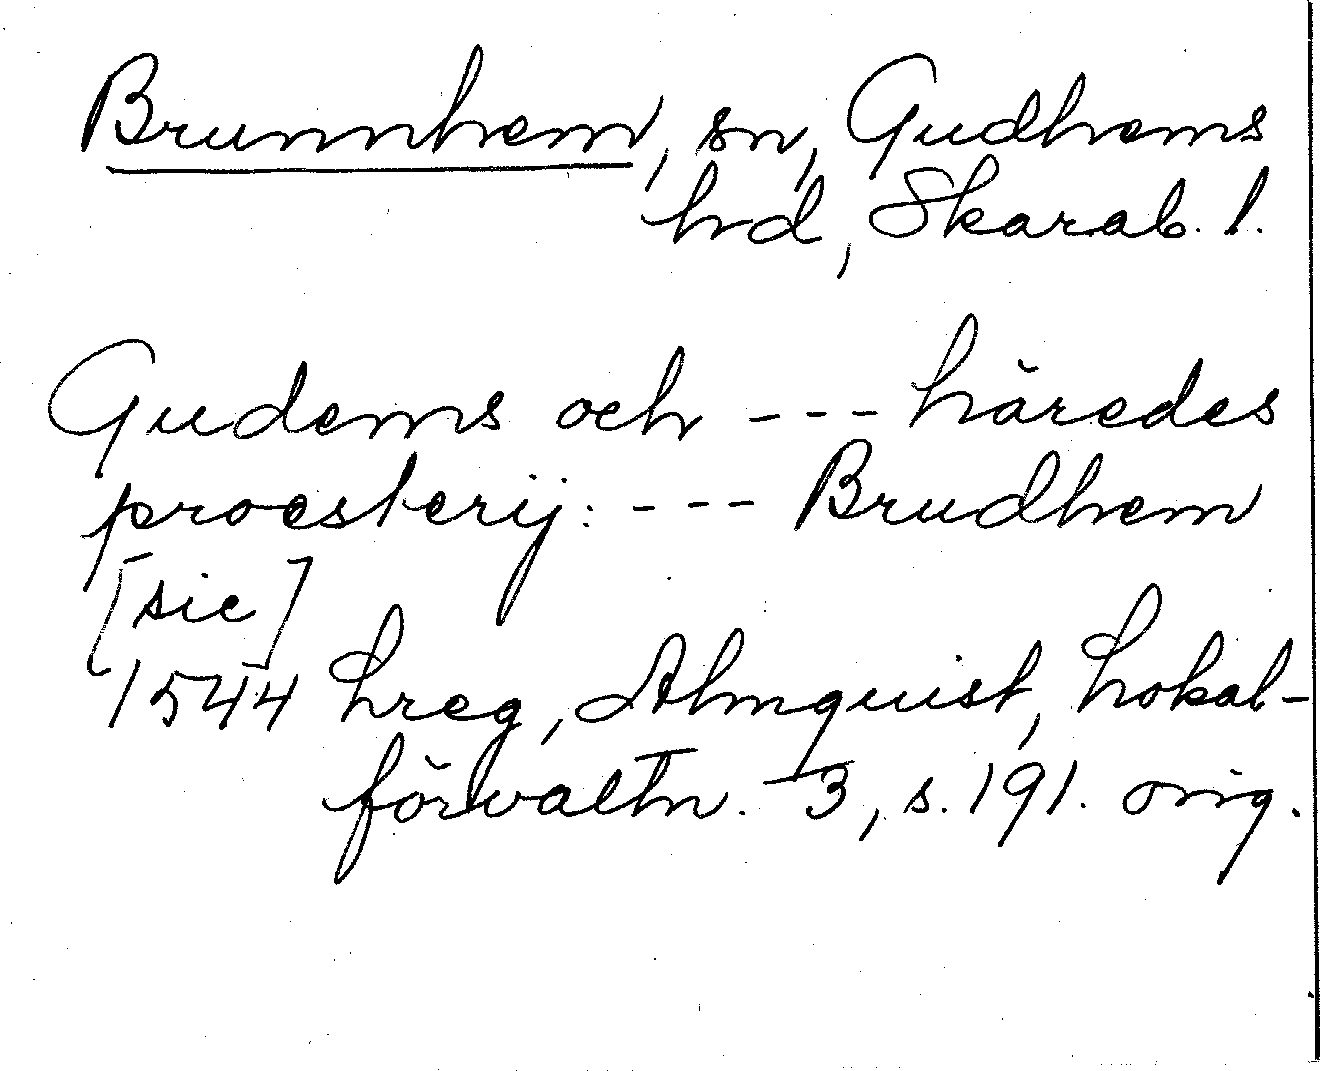 Brunnhem, sn, Gudhems
hd, Skarab. l.
Gudems och --- häredes
proesterij: --- Brudhem
[sic]
1544 hreg, Almquist, Lokal-
förvaltn. 3, s. 191. orig.